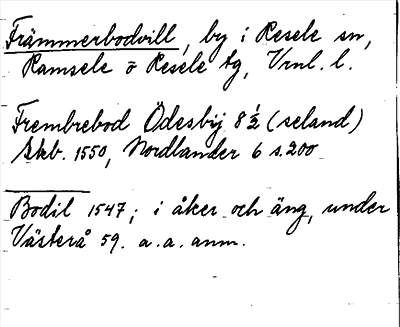 Främmerbodvill, by i Resele sn,
Ramsele o Resele tg, Vrnl. l.
Frembrebod Ödesbÿ 8½ (seland)
Skb. 1550, Nordlander 6 s. 200
Bodil 1547; i åker och äng, under
Västerå 59. a. a. anm.